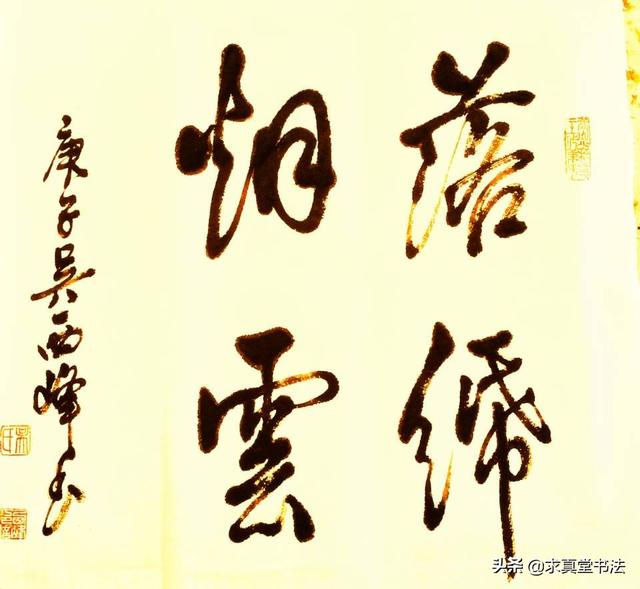 落紙
烟雲
庚子吴西峰书
头条 @求真堂书法